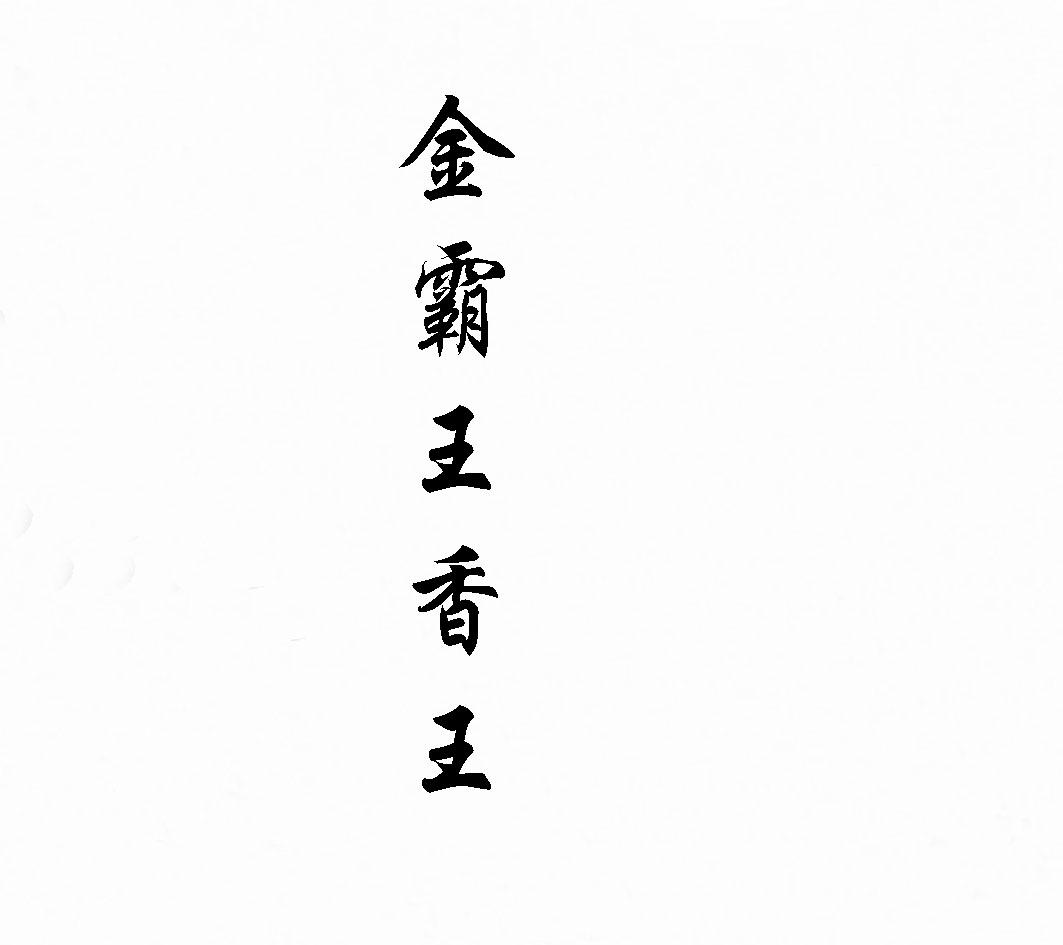 金霸王香王